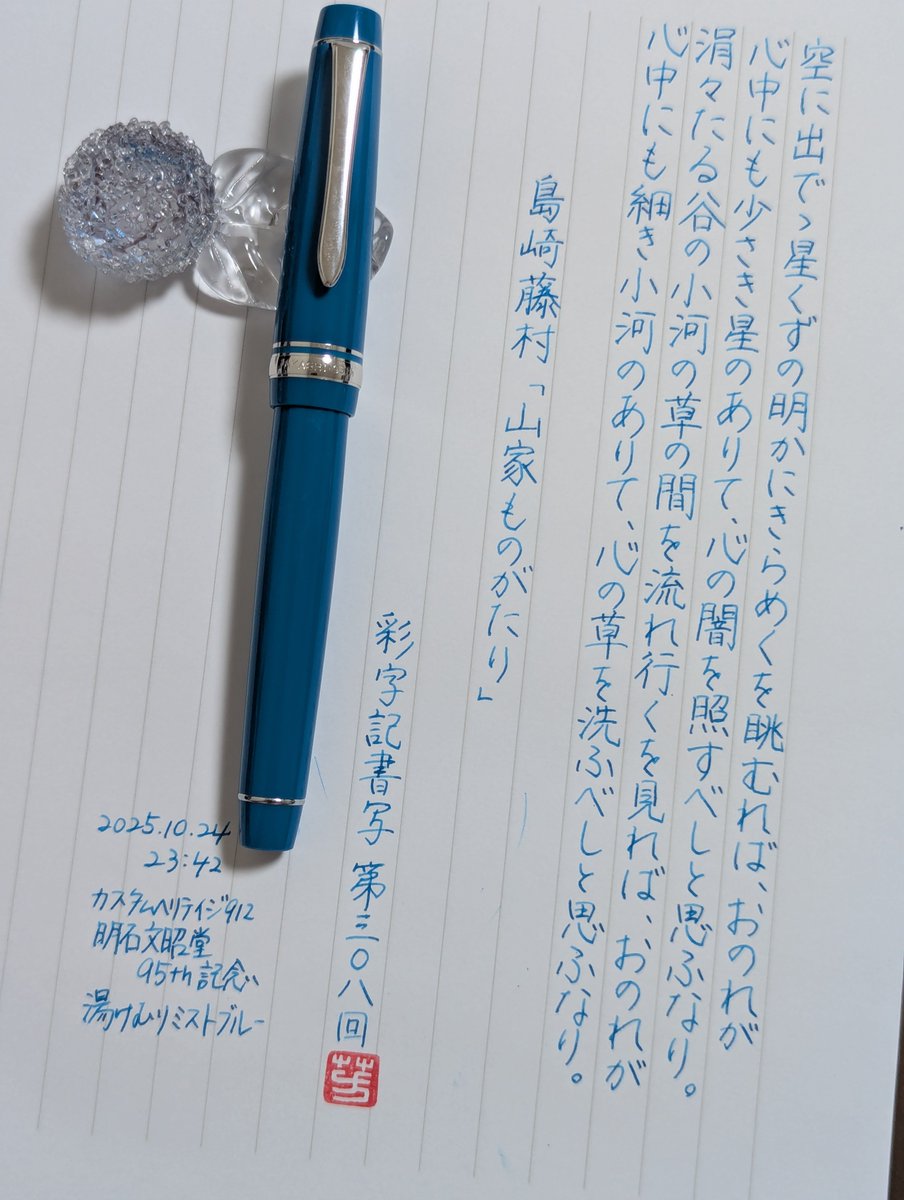 空に出でゝ星くずの明かにきらめくを眺むれば、おのれが
心中にも少さき星のありて、心の闇を照すべしと思ふなり。
涓々たる谷の小河の草の間を流れ行くを見れば、おのれが
心中にも細き小河のありて、心の草を洗ふべしと思ふなり。
島崎藤村「山家ものがたり」
彩字記書写 第三〇八回
芳
2025.10.24
23:42
カスタムヘリテイジ912
明石文昭堂
95th記念
湯けむりミストブルー